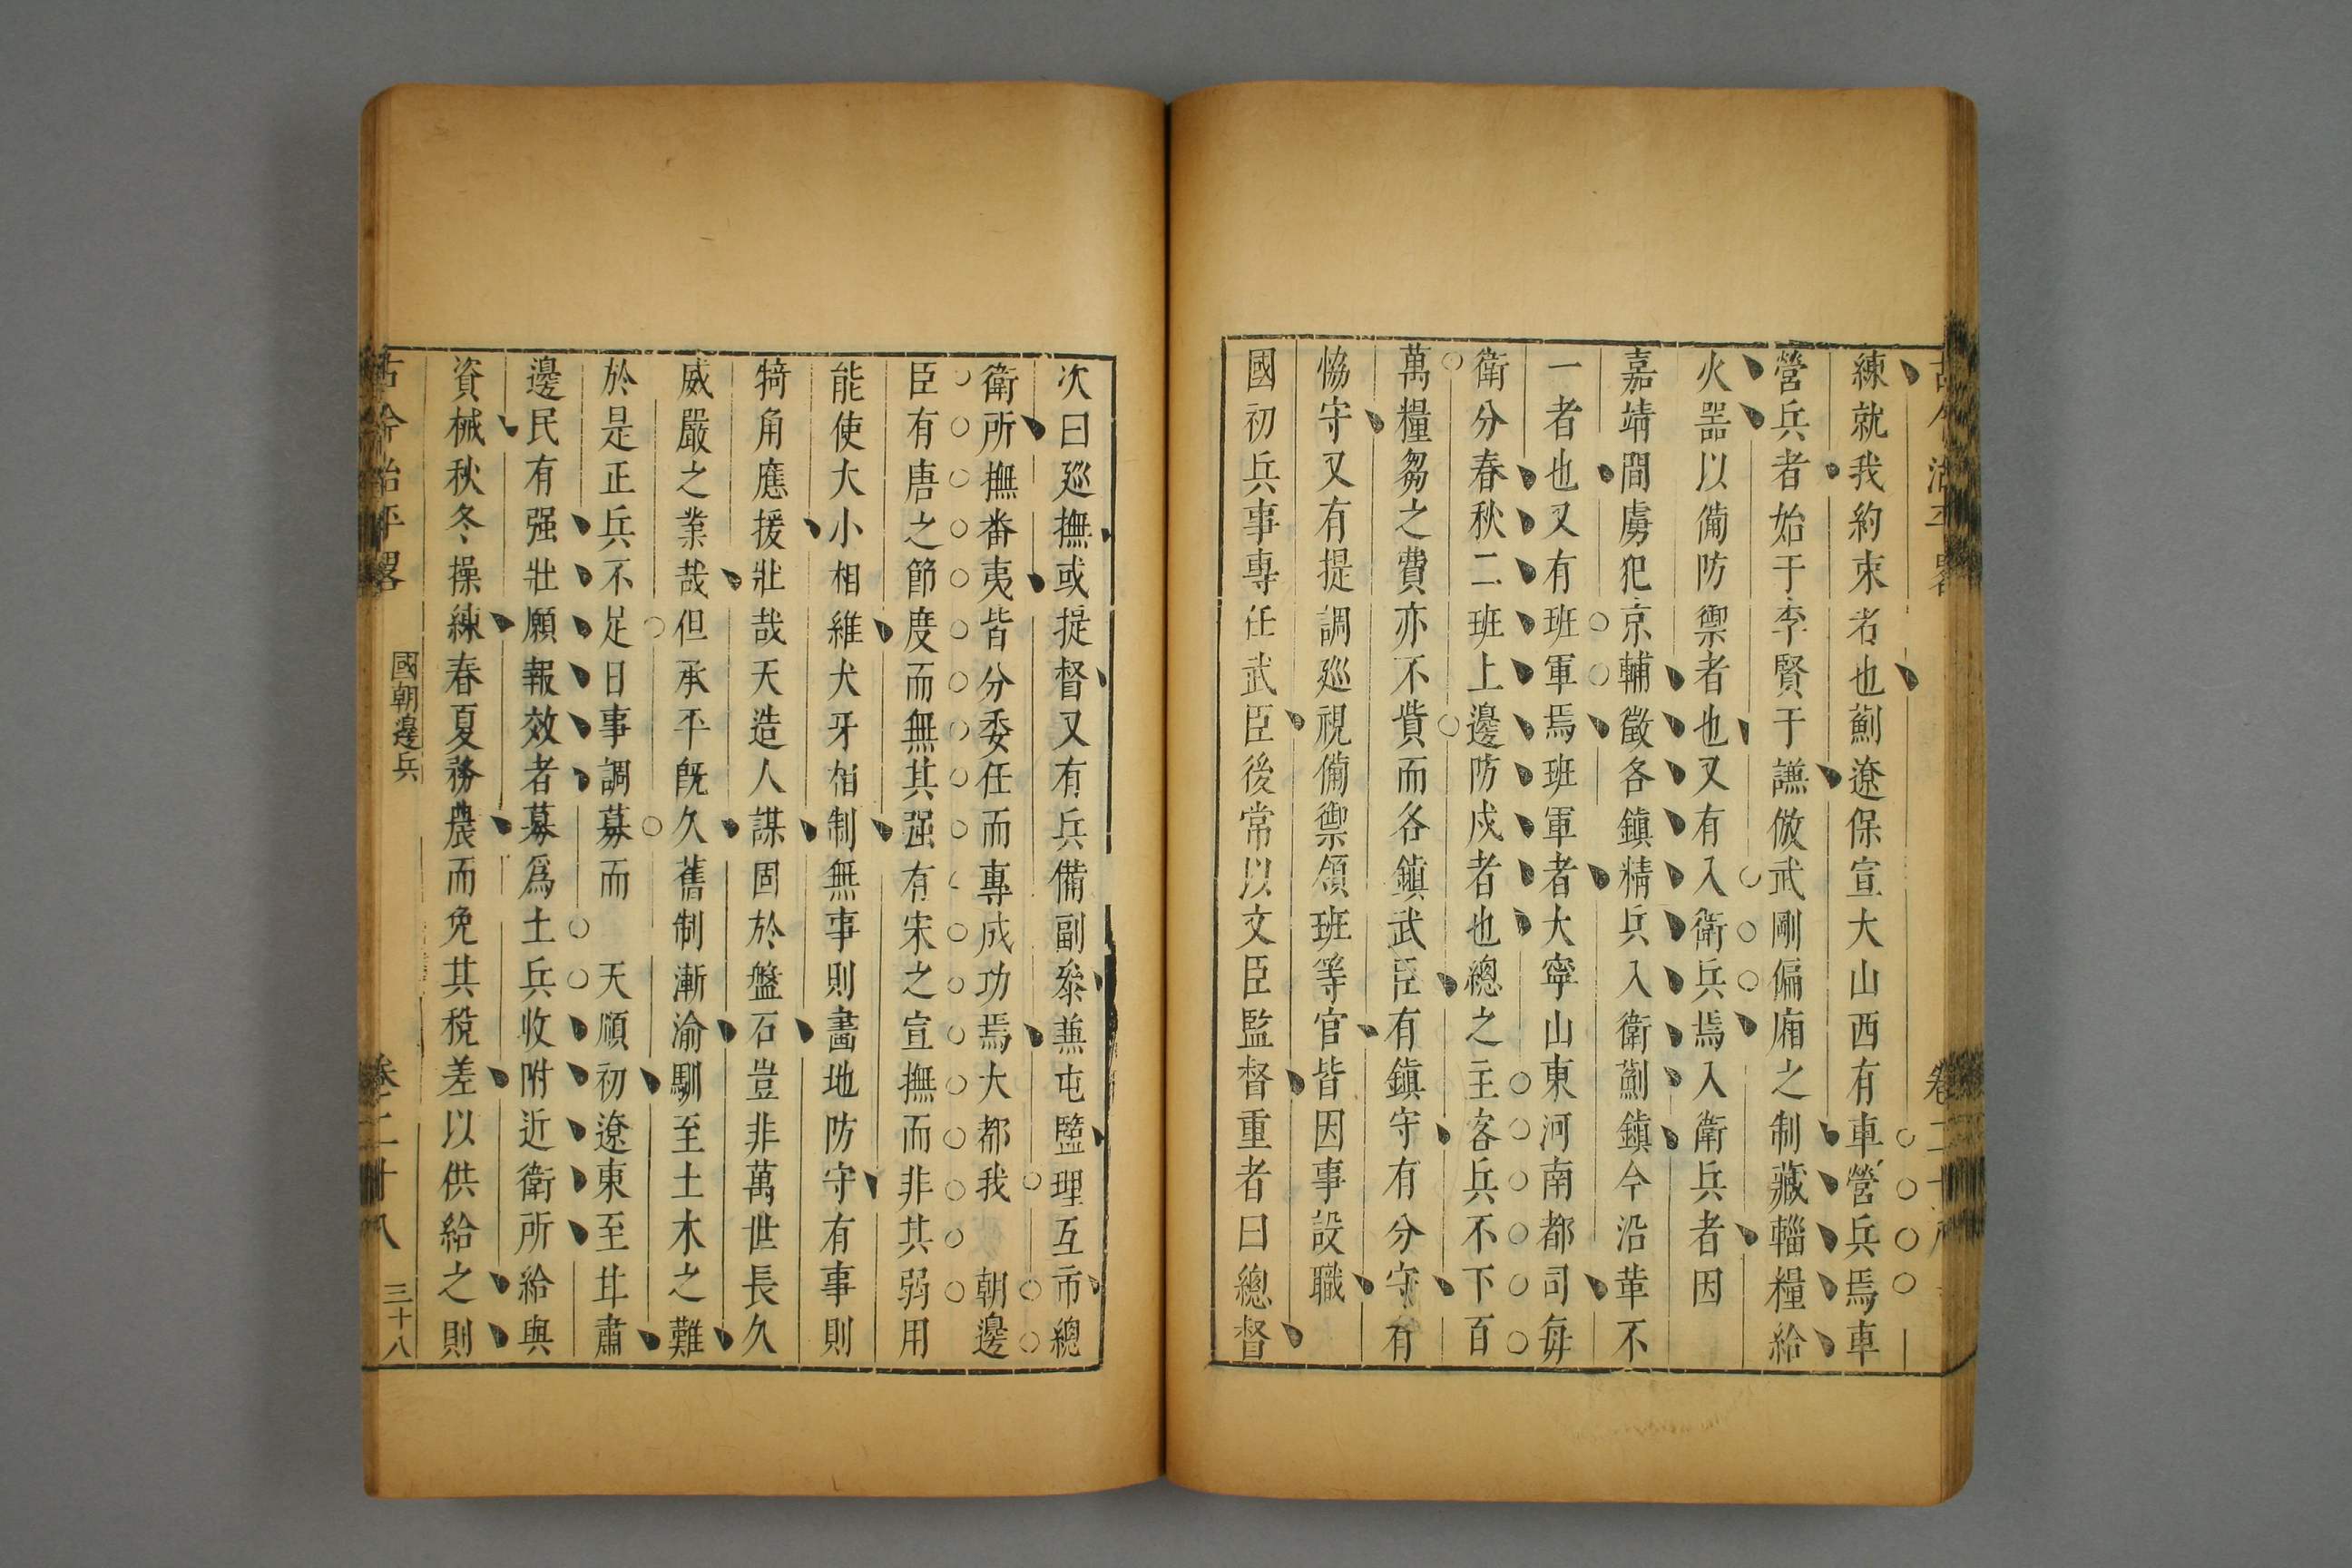 練就我約束者也薊遼保宣大山西有車營兵焉車
營兵者始于李賢于謙倣武剛偏廂之制藏輜糧給
火器以備防禦者也又有入衛兵焉入衛兵者因
嘉靖間虜犯京輔徵各鎮精兵入衛薊鎮今沿革不
一者也又有班軍焉班軍者大寧山東河南都司每
衛分春秋二班上邊防戍者也總之主客兵不下百
萬糧芻之費亦不貲而各鎮武臣有鎮守有分守有
恊守又有提調廵視備禦領班等官皆因事設職
國初兵事專任武臣後常以文臣監督重者曰總督
次曰廵撫或提督又有兵備副叅兼屯鹽理互市總
衛所撫番夷皆分委任而專成功焉大都我 朝邊
臣有唐之節度而無其强有宋之宣撫而非其弱用
能使大小相維犬牙相制無事則畫地防守有事則
犄角應援壯哉天造人謀固於盤石豈非萬世長久
威嚴之業哉但承平旣久舊制漸渝馴至土木之難
於是正兵不足日事調募而 天順初遼東至甘肅
邊民有强壯願報效者募爲土兵收附近衛所給與
資械秋冬操練春夏務農而免其稅差以供給之則
古今治平畧 國朝邊兵 卷二十八 三十八